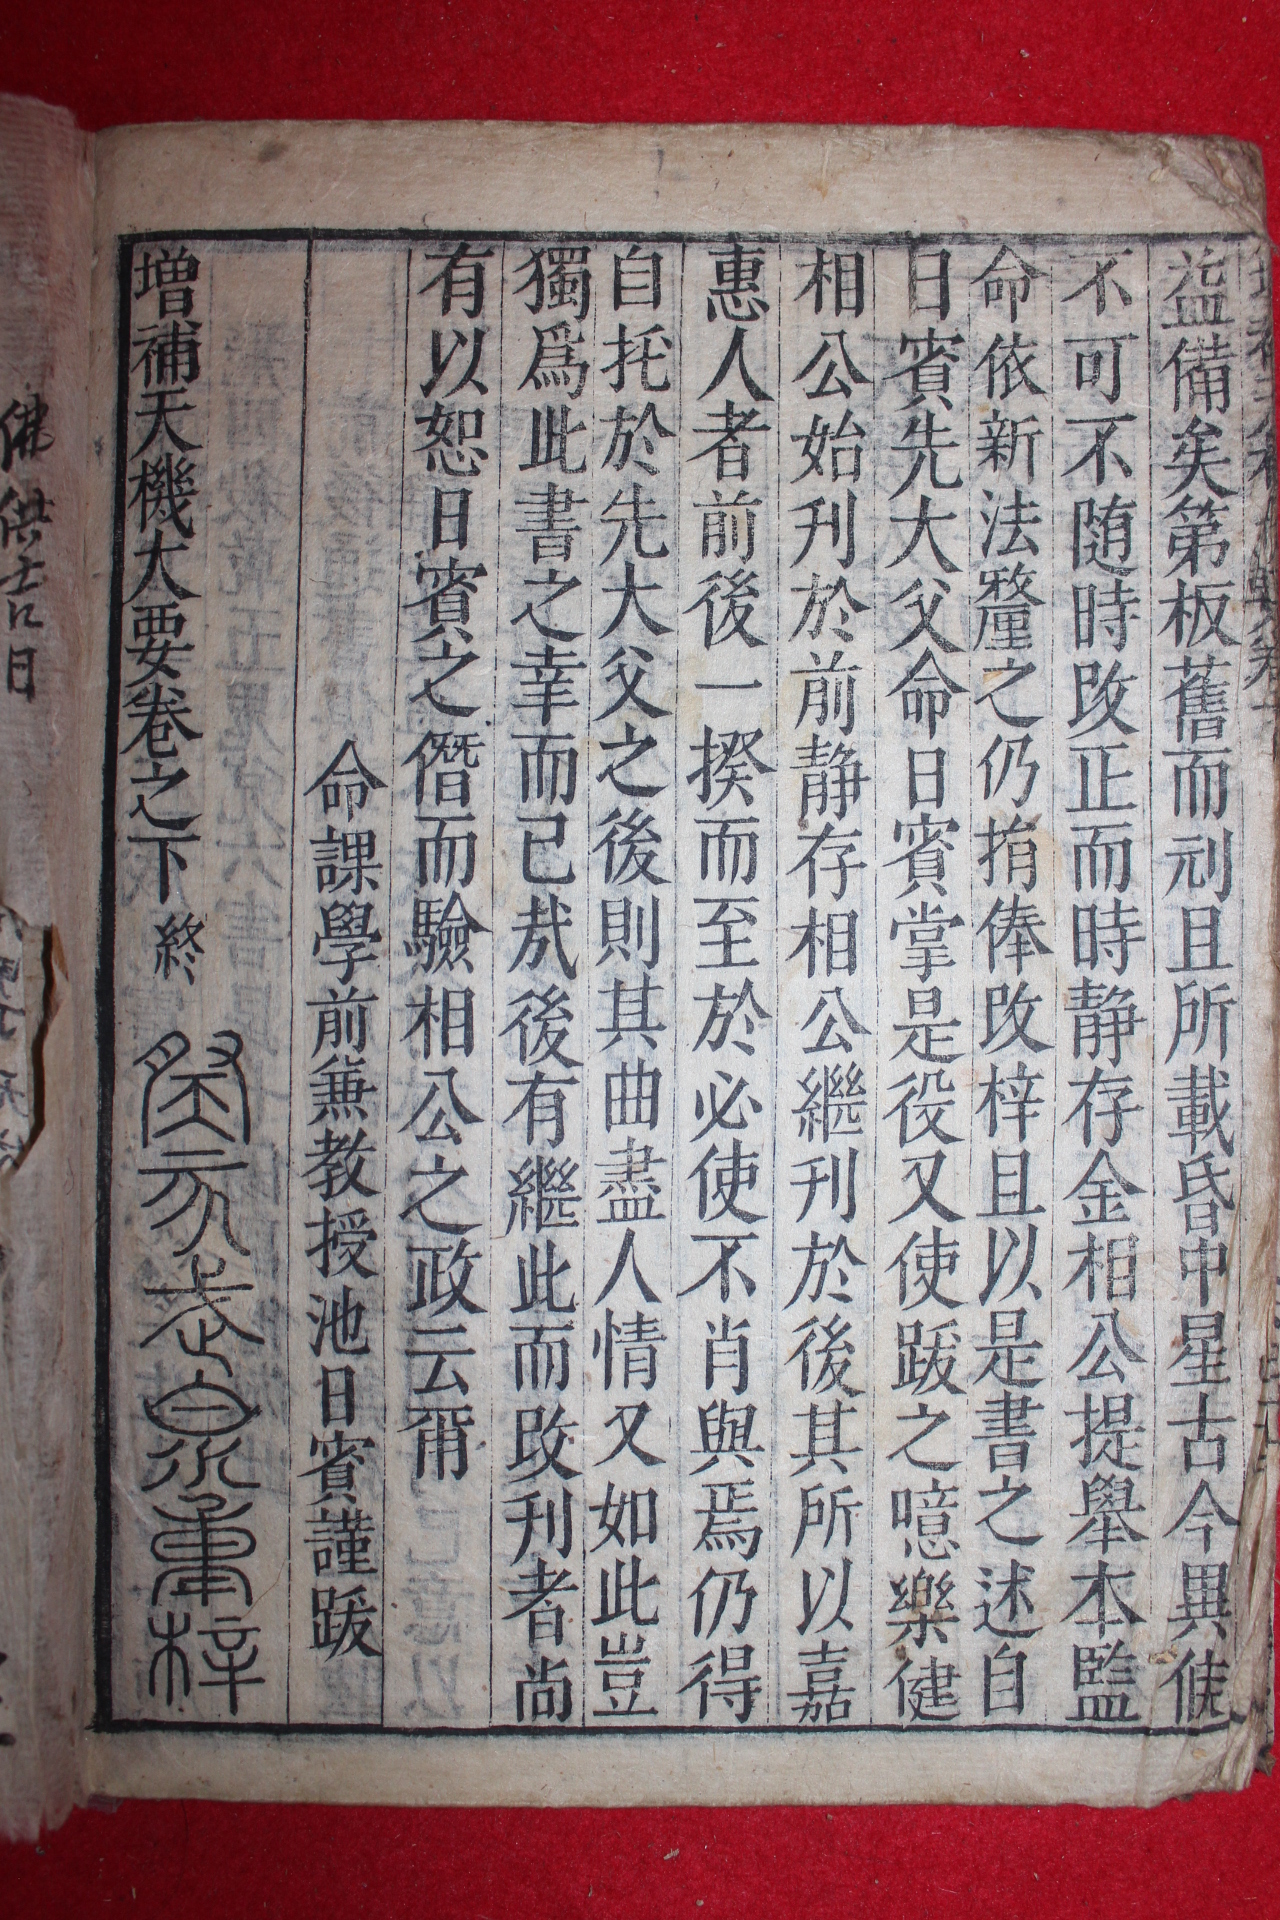 益備矣第板舊而刓且所載昏中星古今異候
不可不随時改正而時静存金相公提舉本監
命依新法釐之仍捐俸改梓且以是書之述自
日賓先大父命日賓掌是役又使跋之噫樂健
相公始刋於前静存相公継刋於後其所以嘉
惠人者前後一揆而至於必使不肖與焉仍得
自托於先大父之後則其曲盡人情又如此豈
獨爲此書之幸而已㢤後有継此而改刋者尚
有以恕日賓之僭而驗相公之政云甭
命課學前兼教授池日賓謹跋
增補天機大要卷之下 終
癸亥 泉 重梓
佛供吉日